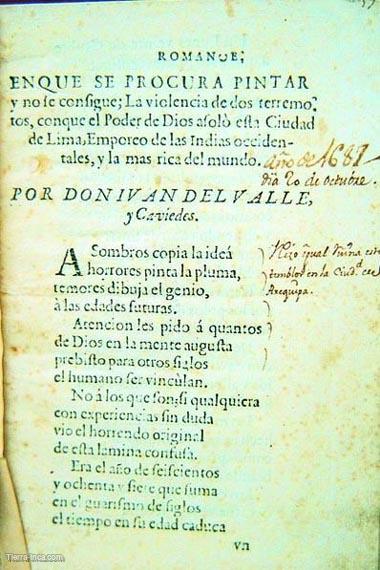 ROMANCE,
EN QUE SE PROCURA PINTAR
y no se consigue; La violencia de dos terremo-
tos, con que el Poder de Dios asoló esta Ciudad
de Lima, Emporeo de las Indias occiden-
tales, y la mas rica del mundo.
año de 1687
dia 20 de octubre.
POR DON IVAN DEL VALLE,
y Caviedes.
ASombros copia la ideá
horrores pinta la pluma,
temores dibuja el genio,
à las edades futuras.
Hizo igual ruina este
temblor en la Ciud.d de
Arequipa.
Atencion les pido á quantos
de Dios en la mente augusta
prebisto para otros siglos
el humano ser vincùlan.
No á los que son, si qualquiera
con experiencias sin duda
vio el horrendo original
de esta lamina confusa.
Era el año de seiscientos
y ochenta y siete que suma
en el guarismo de siglos
el tiempo en su edad caduca
vn
Tierra-Inca.com